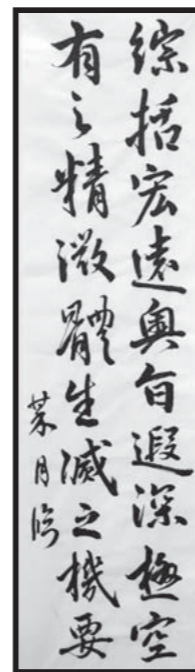 綜括宏遠奧旨遐深極空
有之精微體生滅之機要
葉月臨